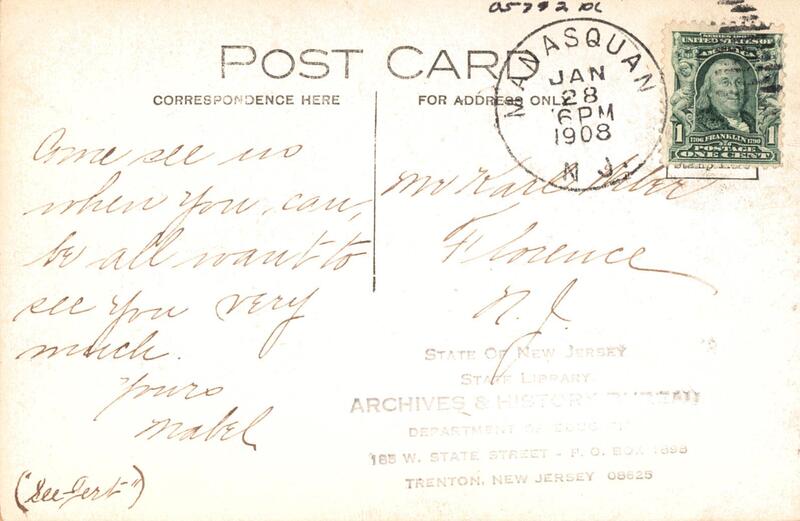 POST CARD
CORRESPONDENCE HERE
FOR ADDRESS ONLY
MANASQUAN
JAN
28
6PM
1908
N.J.
SERIES 1902
UNITED STATES OF
AMERICA
1 1
1706 FRANKLIN 1790
POSTAGE
ONE CENT
Come see us
when you can,
We all want to
see you very
much.
Yours
Mabel
("See-Gert")
Mr Karl
Florence
N.J.
STATE OF NEW JERSEY
STATE LIBRARY
ARCHIVES & HISTORY BUREAU
DEPARTMENT OF EDUC
185 W. STATE STREET - P. O. BOX 1898
TRENTON, NEW JERSEY 08625